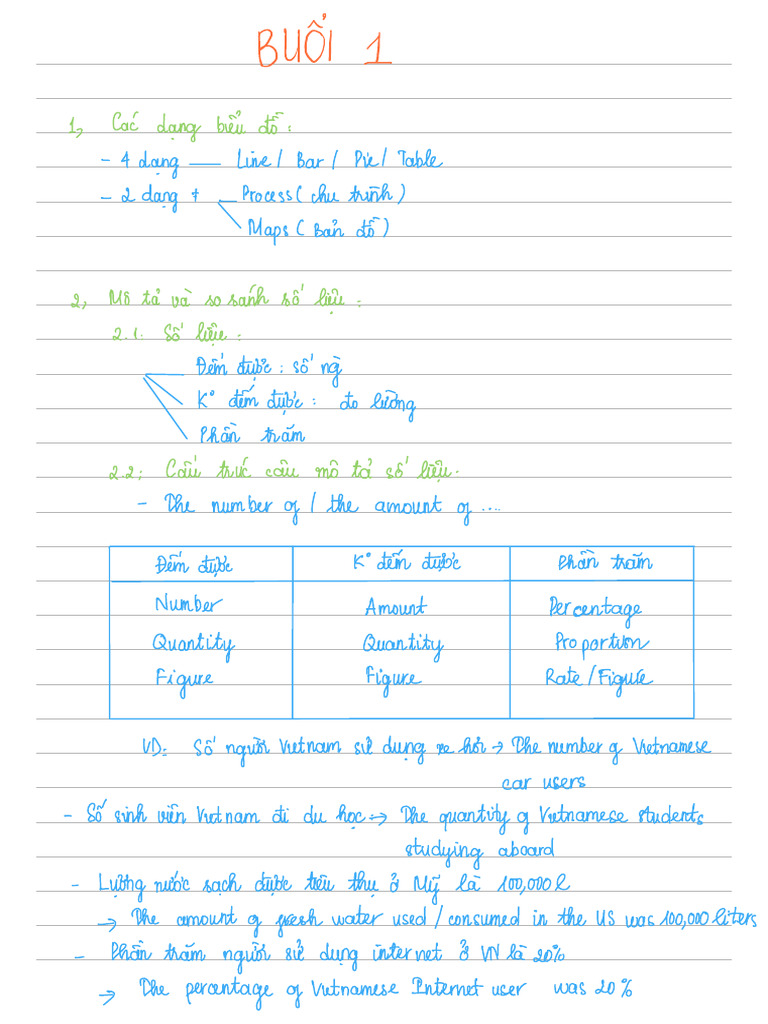 BUỔI 1
1, Các dạng biểu đồ :
- 4 dạng — Line / Bar / Pie / Table
- 2 dạng + Process ( chu trình )
Maps ( Bản đồ )
2, Mô tả và so sánh số liệu :
2.1. Số liệu :
Đếm được : số ng
K° đếm được : đo lường
Phần trăm
2.2: Cấu trúc câu mô tả số liệu.
- The number of / the amount of ....
Đếm được K° đếm được Phần trăm
Number Amount Percentage
Quantity Quantity Proportion
Figure Figure Rate / Figure
VD: Số người Vietnam sử dụng xe hơi → The number of Vietnamese
car users
- Số sinh viên Vietnam đi du học → The quantity of Vietnamese students
studying aboard
- Lượng nước sạch được tiêu thụ ở Mỹ là 100,000 l
→ The amount of fresh water used / consumed in the US was 100,000 liters
- Phần trăm người sử dụng internet ở VN là 20%
→ The percentage of Vietnamese Internet user was 20 %